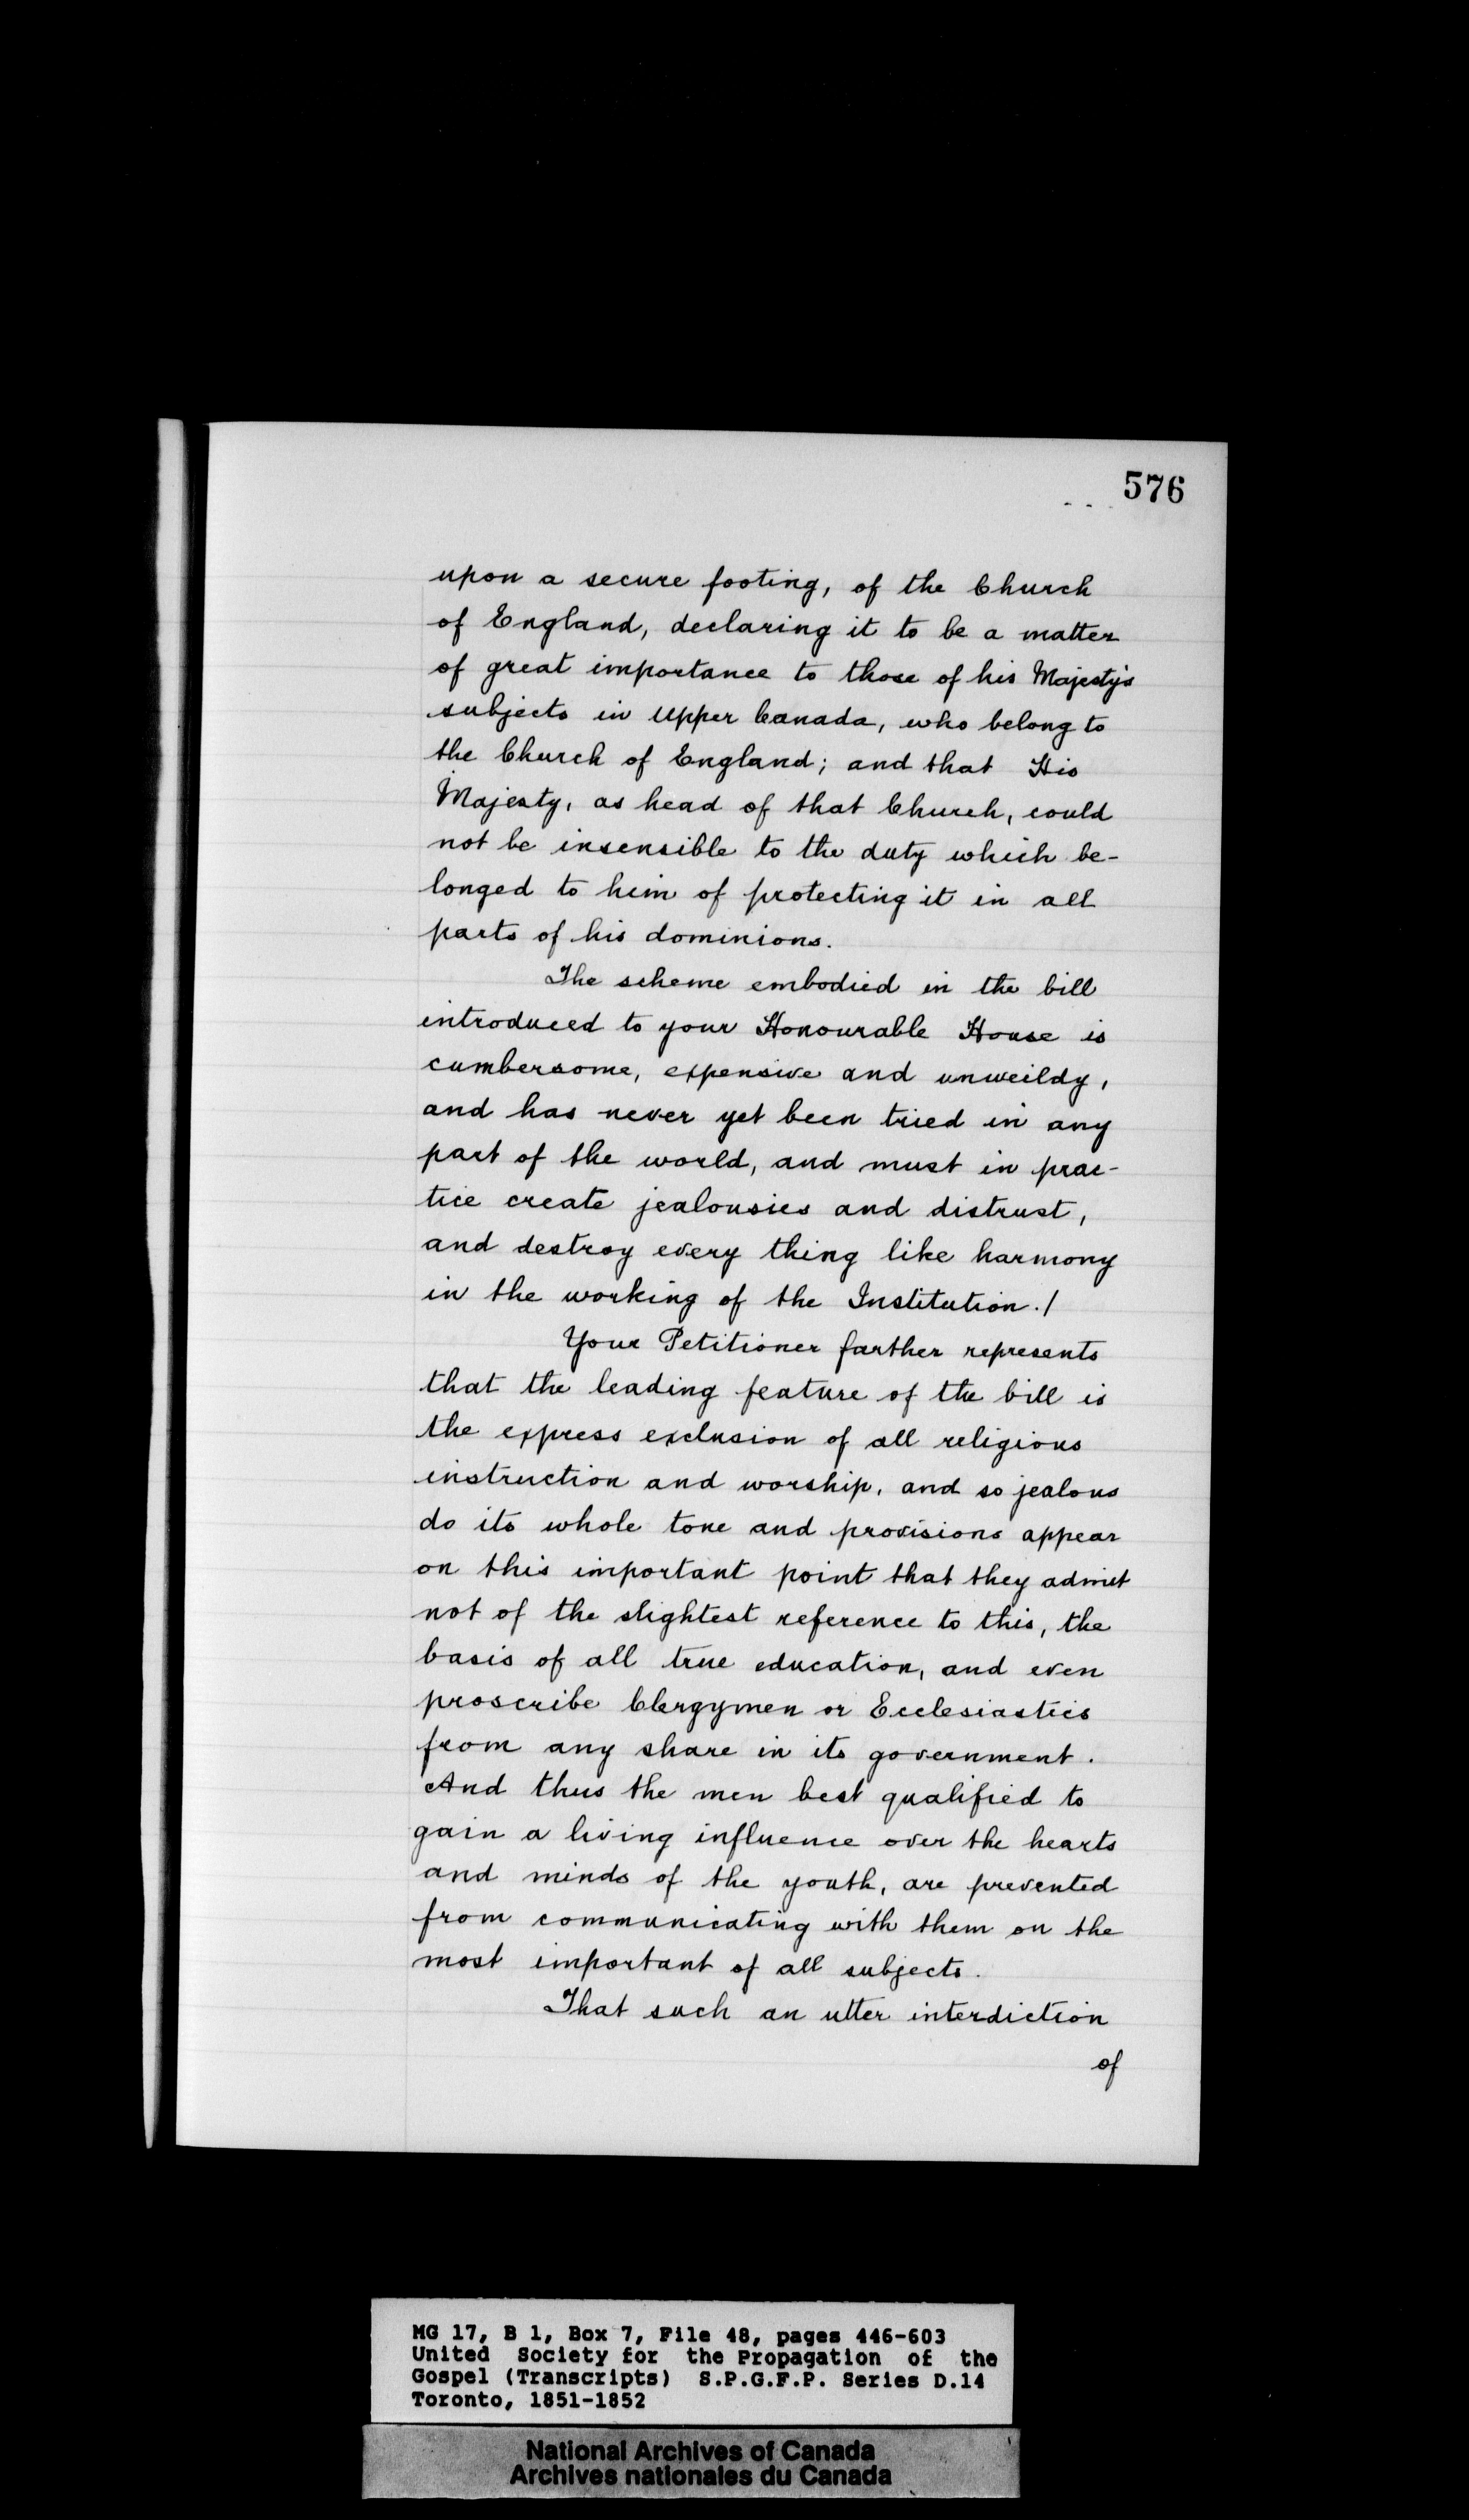 576
upon a secure footing, of the Church
of England, declaring it to be a matter
of great importance to those of his Majesty's
subjects in Upper Canada, who belong to
the Church of England; and that His
Majesty, as head of that Church, could
not be insensible to the duty which be-
longed to him of protecting it in all
parts of his dominions.
The scheme embodied in the bill
introduced to your Honourable House is
cumbersome, expensive and unweildy,
and has never yet been tried in any
part of the world, and must in prac-
tice create jealousies and distrust,
and destroy every thing like harmony
in the working of the Institution./
Your Petitioner farther represents
that the leading feature of the bill is
the express exclusion of all religious
instruction and worship, and so jealous
do its whole tone and provisions appear
on this important point that they admit
not of the slightest reference to this, the
basis of all true education, and even
proscribe Clergymen or Ecclesiastics
from any share in its government.
And thus the men best qualified to
gain a living influence over the hearts
and minds of the youth, are prevented
from communicating with them on the
most important of all subjects.
That such an utter interdiction
of
MG 17, B 1, Box 7, File 48, pages 446-603
United Society for the Propagation of the
Gospel (Transcripts) S.P.G.F.P. Series D.14
Toronto, 1851-1852
National Archives of Canada
Archives nationales du Canada